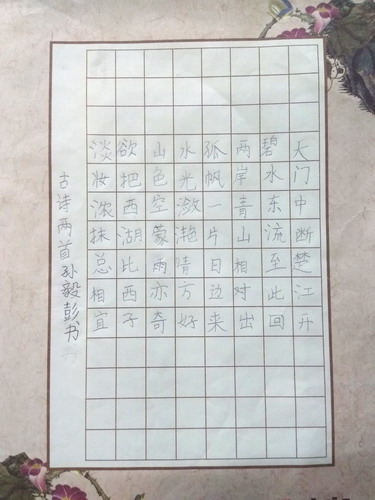 天门中断楚江开
碧水东流至此回
两岸青山相对出
孤帆一片日边来
水光潋滟晴方好
山色空蒙雨亦奇
欲把西湖比西子
淡妆浓抹总相宜
古诗两首孙毅彭书